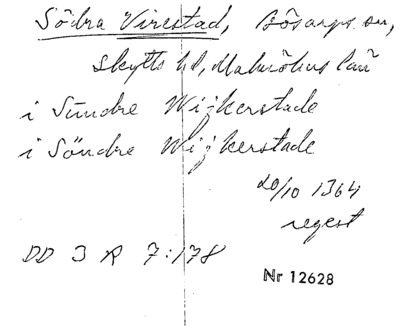 Södra Virestad, Bösarps sn,
Skytts hd, Malmöhus län
i Sundre Wijkerstade
i Söndre Wijkerstade
20/10 1364
regest
DD 3 R 7:178
Nr 12628